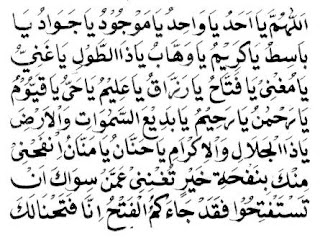 اَللّٰهُمَّ يَا اَحَدُ يَا وَاحِدُ يَا مَوْجُوْدُ يَا جَوَادُ يَا
بَاسِطُ يَا كَرِيْمُ يَا وَهَّابُ يَا ذَا الطَّوْلِ يَا غَنِيُّ
يَا مُغْنِيُ يَا فَتَّاحُ يَا رَزَّاقُ يَا عَلِيْمُ يَا حَيُّ يَا قَيُّوْمُ
يَا رَحْمٰنُ يَا رَحِيْمُ يَا بَدِيْعَ السَّمٰوَاتِ وَالْاَرْضِ
يَا ذَا الْجَلَالِ وَالْاِكْرَامِ يَا حَنَّانُ يَا مَنَّانُ انْفَحْنِيْ
مِنْكَ بِنَفْحَةِ خَيْرٍ تُغْنِنِيْ عَمَّنْ سِوَاكَ اَنْ
تَسْتَفْتِحُوْا فَقَدْ جَاءَكُمُ الْفَتْحُ اِنَّا فَتَحْنَا لَكَ